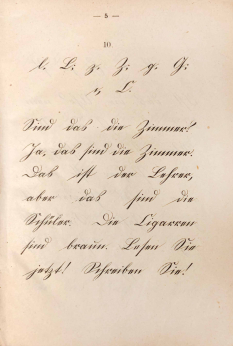 — 5 —
10.
l. L: z. Z: g. G:
Sind das die Zimmer?
Ja, das sind die Zimmer.
Das ist der Lehrer,
aber das sind die
Schüler. Die Cigarren
sind braun. Lesen Sie
jetzt! Schreiben Sie!